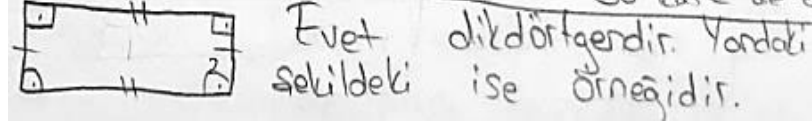 Evet dikdörtgendir. Yandaki
şekildeki ise örneğidir.